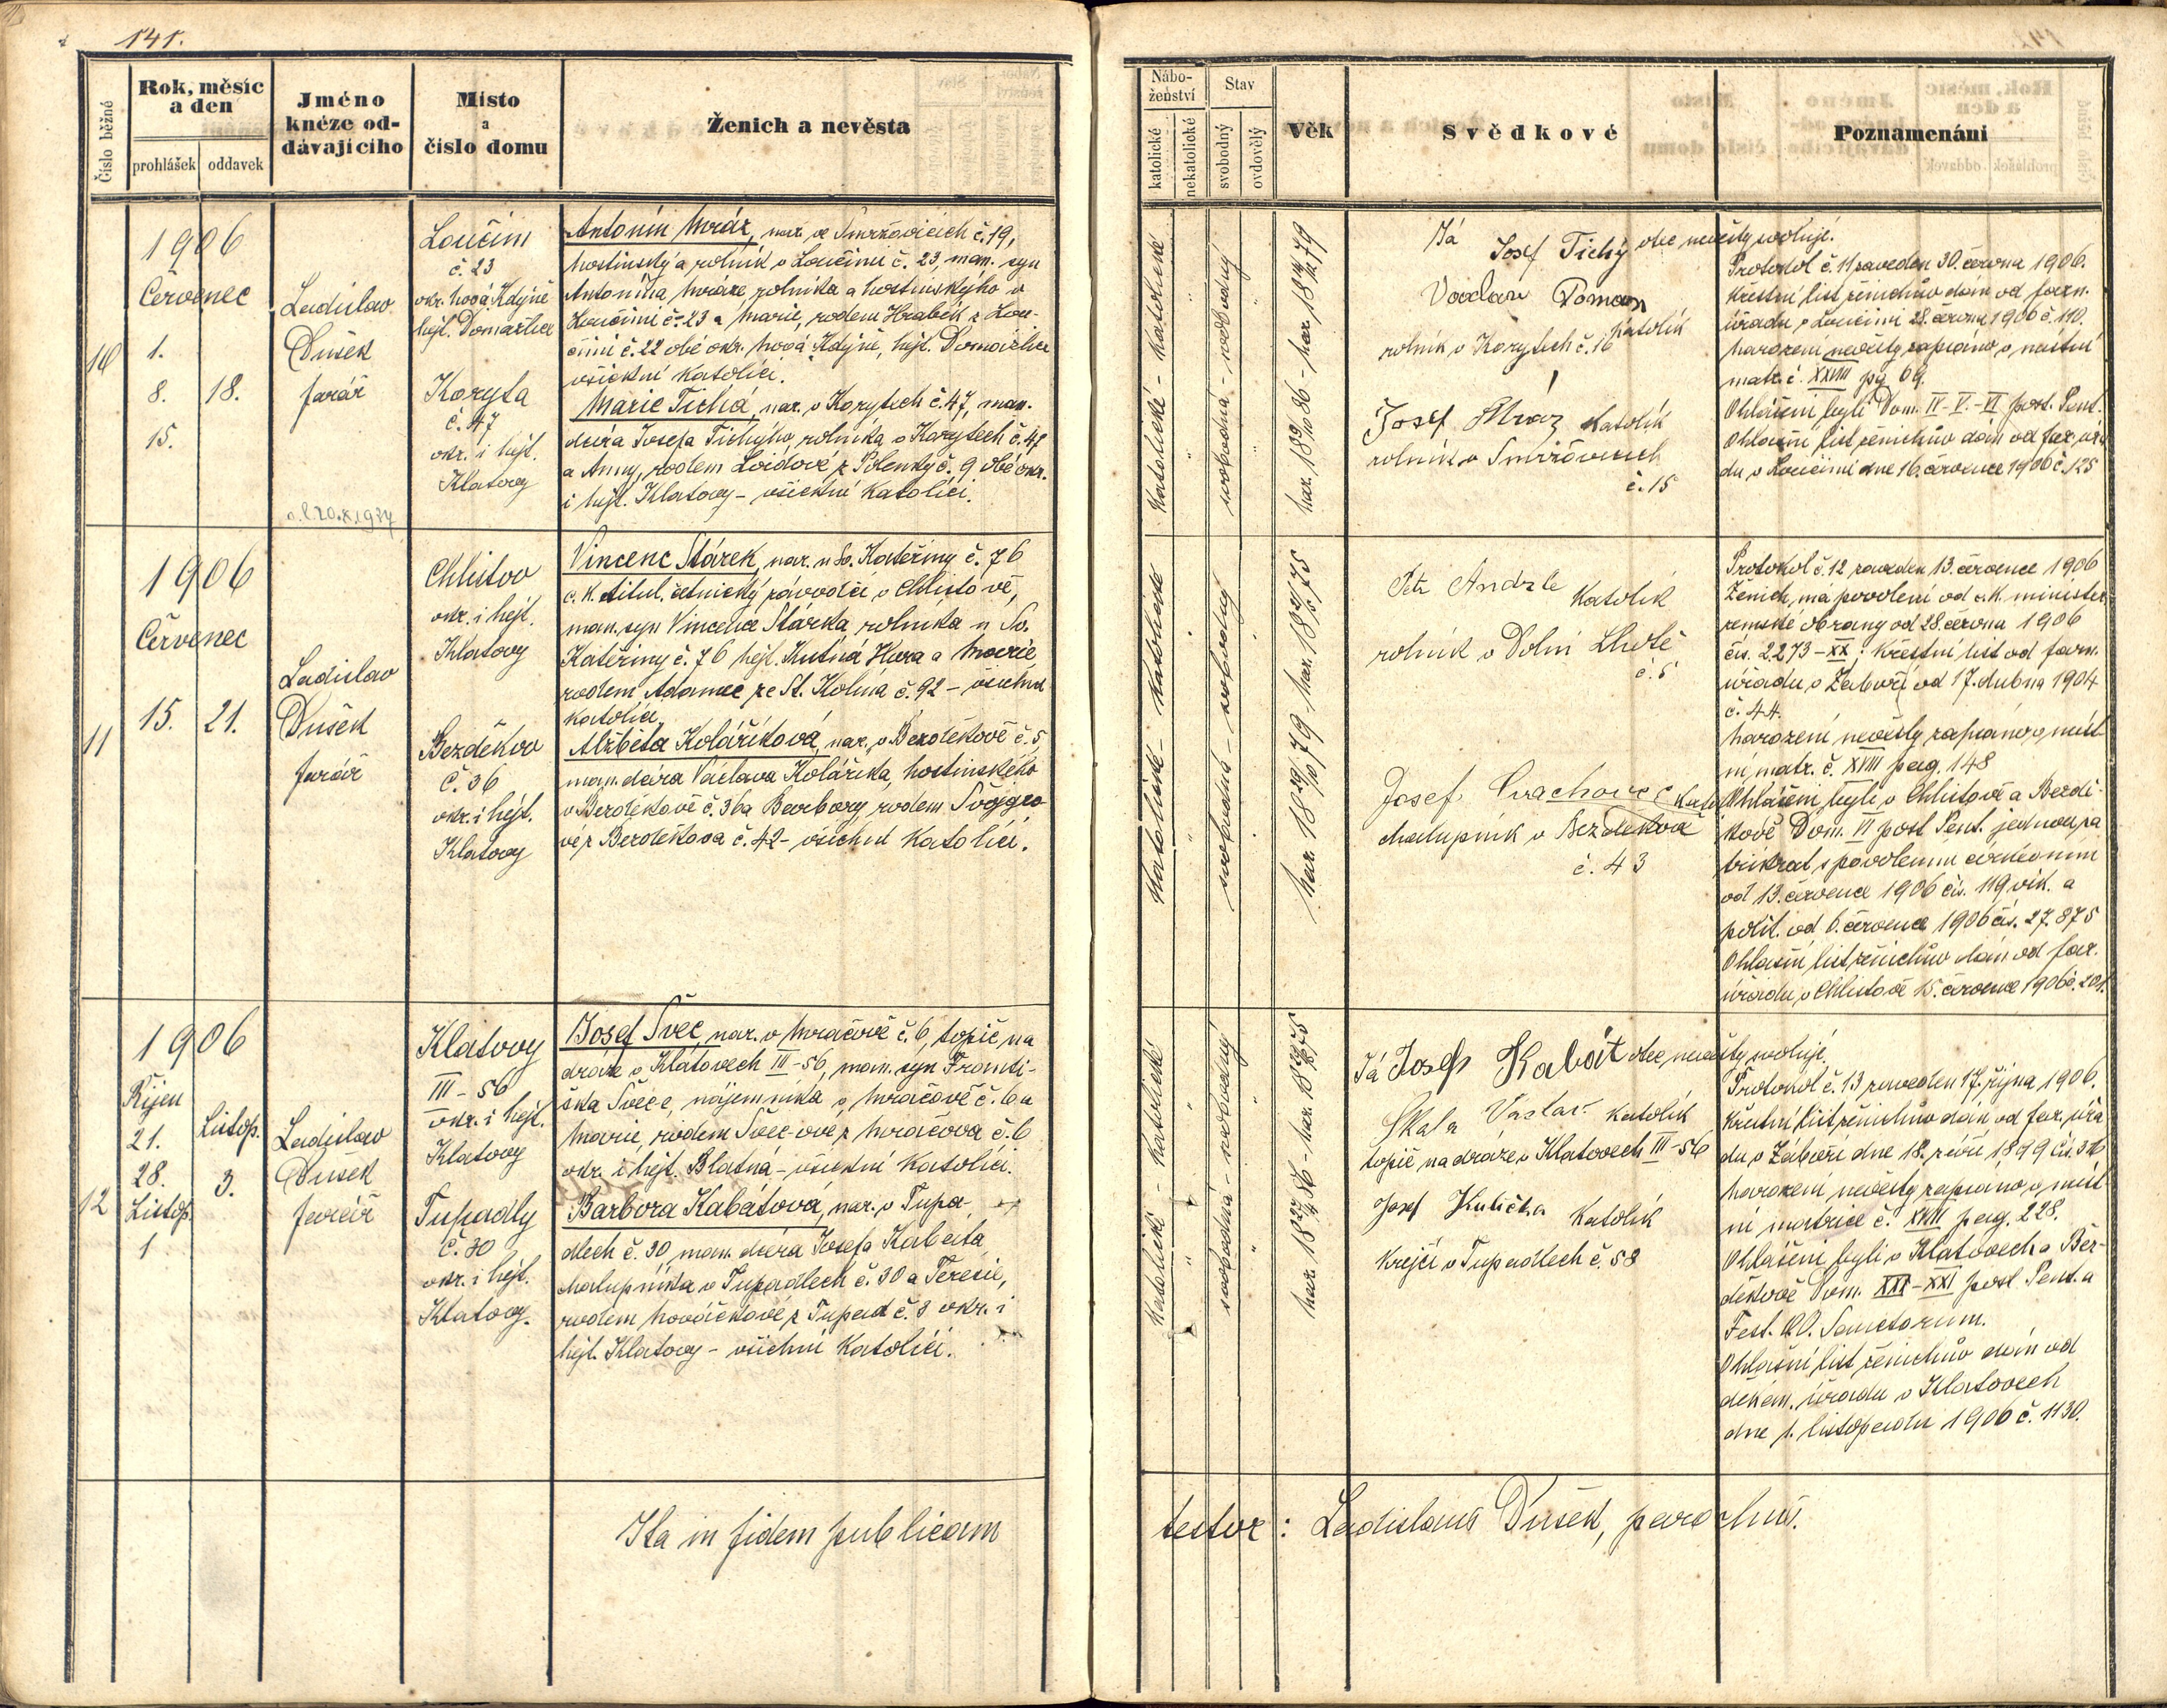 141.
Číslo běžné
Rok, měsíc a den
prohlášek
oddavek
Jméno kněze oddávajícího
Místo a číslo domu
Ženich a nevěsta
Náboženství
katolické
nekatolické
Stav
svobodný
ovdovělý
Věk
Svědkové
Poznamenání
10
1906
Červenec
1.
8. 18.
15.
Ladislav
Dušek
farář
Loučim
č. 23
okr. Nová Kdyně
hejt. Domažlice
Koryta
č. 47
okr. i hejt.
Klatovy
Antonín Mráz, nar. ve Smržovicích č. 19,
hostinský a rolník v Loučimi č. 23, man. syn
Antonína Mráze, rolníka a hostinského v
Loučimi č. 23 a Marie, rodem Hrabík z Lou-
čimi č. 22 obé okr. Nová Kdyně, hejt. Domažlice
všickni katolíci.
Marie Tichá, nar. v Korytech č. 47, man.
dcera Josefa Tichýho, rolníka v Korytech č. 47
a Anny, rodem Loidové z Polenky č. 9 obé okr.
i hejt. Klatovy - všickni katolíci.
katolické - katolické
svobodná - svobodný
Já Josef Tichý otec nevěsty svoluji.
Václav Toman
katolík
rolník v Korytech č. 16
Josef Mráz katolík
rolník v Smržovicích
č. 15
Protokol č. 11 zaveden 30. června 1906.
Křestní list ženichův dán od farn.
úřadu v Loučimi 28. června 1906 č. 110.
Narození nevěsty zapsáno v místní
matr. č. XXVIII pg 69.
Ohlášeni byli Dom. IV-V.-VI post. Pent.
Ohlašní list ženichův dán od far. úřa
du v Loučimi dne 16. července 1906 č. 125
11
1906
Červenec
15. 21.
Ladislav
Dušek
farář
Chlistov
okr. i hejt.
Klatovy
Bezděkov
č. 36
okr. i hejt.
Klatovy
Vincenc Stárek, nar. u Sv. Kateřiny č. 76
c. k. titul. četnický závodčí v Chlistově,
man. syn Vincence Stárka rolníka u Sv.
Kateřiny č. 76 hejt. Kutná Hora a Marie
rodem Adamec ze St. Kolína č. 92 - všichni
katolíci.
Alžběta Kolaříková, nar. v Bezděkově č. 5,
man. dcera Václava Kolaříka, hostinského
v Bezděkově č. 36 a Barbory, rodem Švojgro
vé z Bezděkova č. 42 - všichni katolíci.
katolické - katolické
svobodná - svobodný
Petr Andrle katolík
rolník v Dolní Lhotě
č. 5
Josef Svachovec
chalupník v Bezděkově
č. 43
Protokol č. 12 zaveden 13. července 1906
Ženich má povolení od c. k. minister.
zemské obrany od 28. června 1906
čís. 2273-XX; křestní list od farn.
úřadu v Záboří od 17. dubna 1904
č. 44.
Narození nevěsty zapsáno v míst
ní matr. č. XVIII pag. 148
Ohlášeni byli v Chlistově a Bezdě-
kově Dom. VI post Pent. jednou za
třikrát s povolením církevním
od 13. července 1906 čís. 119 vik. a
polit. od 6. července 1906 čís. 27.875
Ohlašní list ženichův dán od far.
úřadu v Chlistově 15. července 1906 č. 201.
12
1906
Říjen
21.
28.
Listop.
1
Listop.
3.
Ladislav
Dušek
farář
Klatovy
III - 56
okr. i hejt.
Klatovy
Tupadly
č. 30
okr. i hejt.
Klatovy.
Josef Švec, nar. v Mračově č. 6, topič na
dráze v Klatovech III-56, man. syn Franti-
ška Švece, nájemníka v Mračově č. 6 a
Marie, rodem Švec-ové z Mračova č. 6
okr. i hejt. Blatná - všickni katolíci.
Barbora Kabátová, nar. v Tupa-
dlech č. 30, man. dcera Josefa Kabáta
chalupníka v Tupadlech č. 30 a Terezie,
rodem Nováčkové z Tupadl č. 3 okr. i
hejt. Klatovy - všichni katolíci.
katolické - katolické
svobodná - svobodný
Já Josef Kabát otec nevěsty svoluji.
Skala Václav katolík
topič na dráze v Klatovech III-56
Josef Kulička katolík
krejčí v Tupadlech č. 58
Protokol č. 13 zaveden 17. října 1906.
Křestní list ženichův dán od far. úřa
du v Záboří dne 18. září 1899 čís. 316
Narození nevěsty zapsáno v míst
ní matrice č. XVIII pag. 228.
Ohlášeni byli v Klatovech a Bez-
děkově Dom. XX-XXI post Pent. a
Fest. O. O. Sanctorum.
Ohlašní list ženichův dán od
děkan. úřadu v Klatovech
dne 1. listopadu 1906 č. 1130.
Ita in fidem publicam
testor: Ladislaus Dušek, parochus.